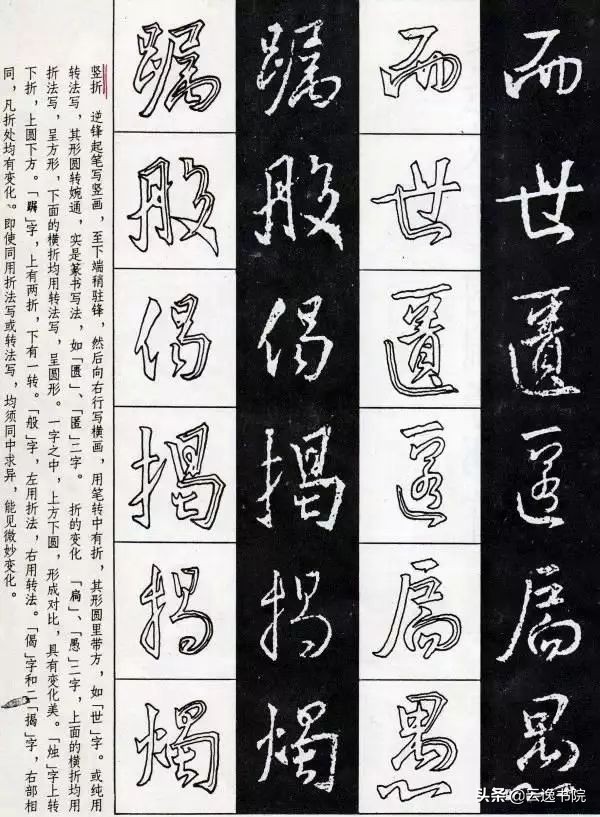 而世匱匿扃愚
而世匱匿扃愚
躅般偈揭揭燭
躅般偈揭揭燭
竖折　逆锋起笔写竖画，至下端稍驻锋，然后向右行写横画，用笔转中有折，其形圆里带方，如「世」字。或纯用
转法写，其形圆转婉通，实是篆书写法，如「匮」、「匿」二字。　折的变化　「扃」、「愚」二字，上面的横折均用
折法写，呈方形，下面的横折均用转法写，呈圆形。一字之中，上方下圆，形成对比，具有变化美。「烛」字上转
下折，上圆下方。「躅」字，上有两折，下有一转。「般」字，左用折法，右用转法。「偈」字和二「揭」字，右部相
同，凡折处均有变化。即使同用折法写或转法写，均须同中求异，能见微妙变化。
头条@云逸书院